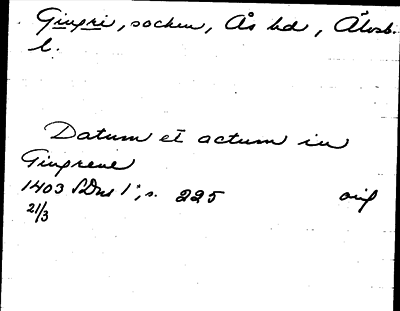 Gingri, socken, Ås hd, Älvsb.
l.
Datum et actum in
Gingrene
1403 SDns 1, s. 225 orig
21/3